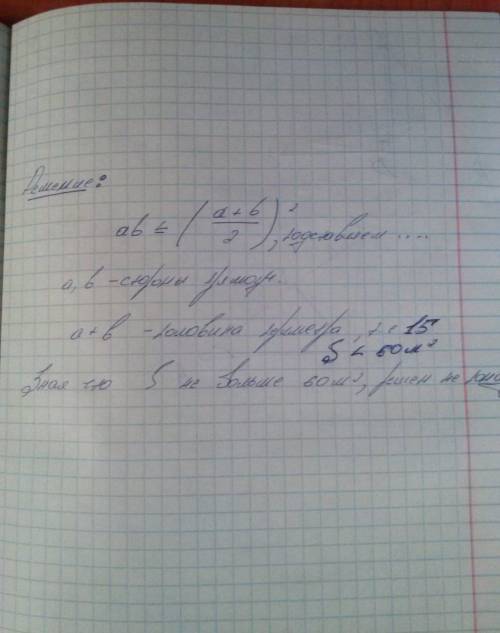 Решение:
ab ≤ (a+b/2)², подставляем ....
a, b - стороны прямоуг..
a+b - половина периметра, т.е 15
S < 60 м²
Зная что S не больше 60 м², решен не